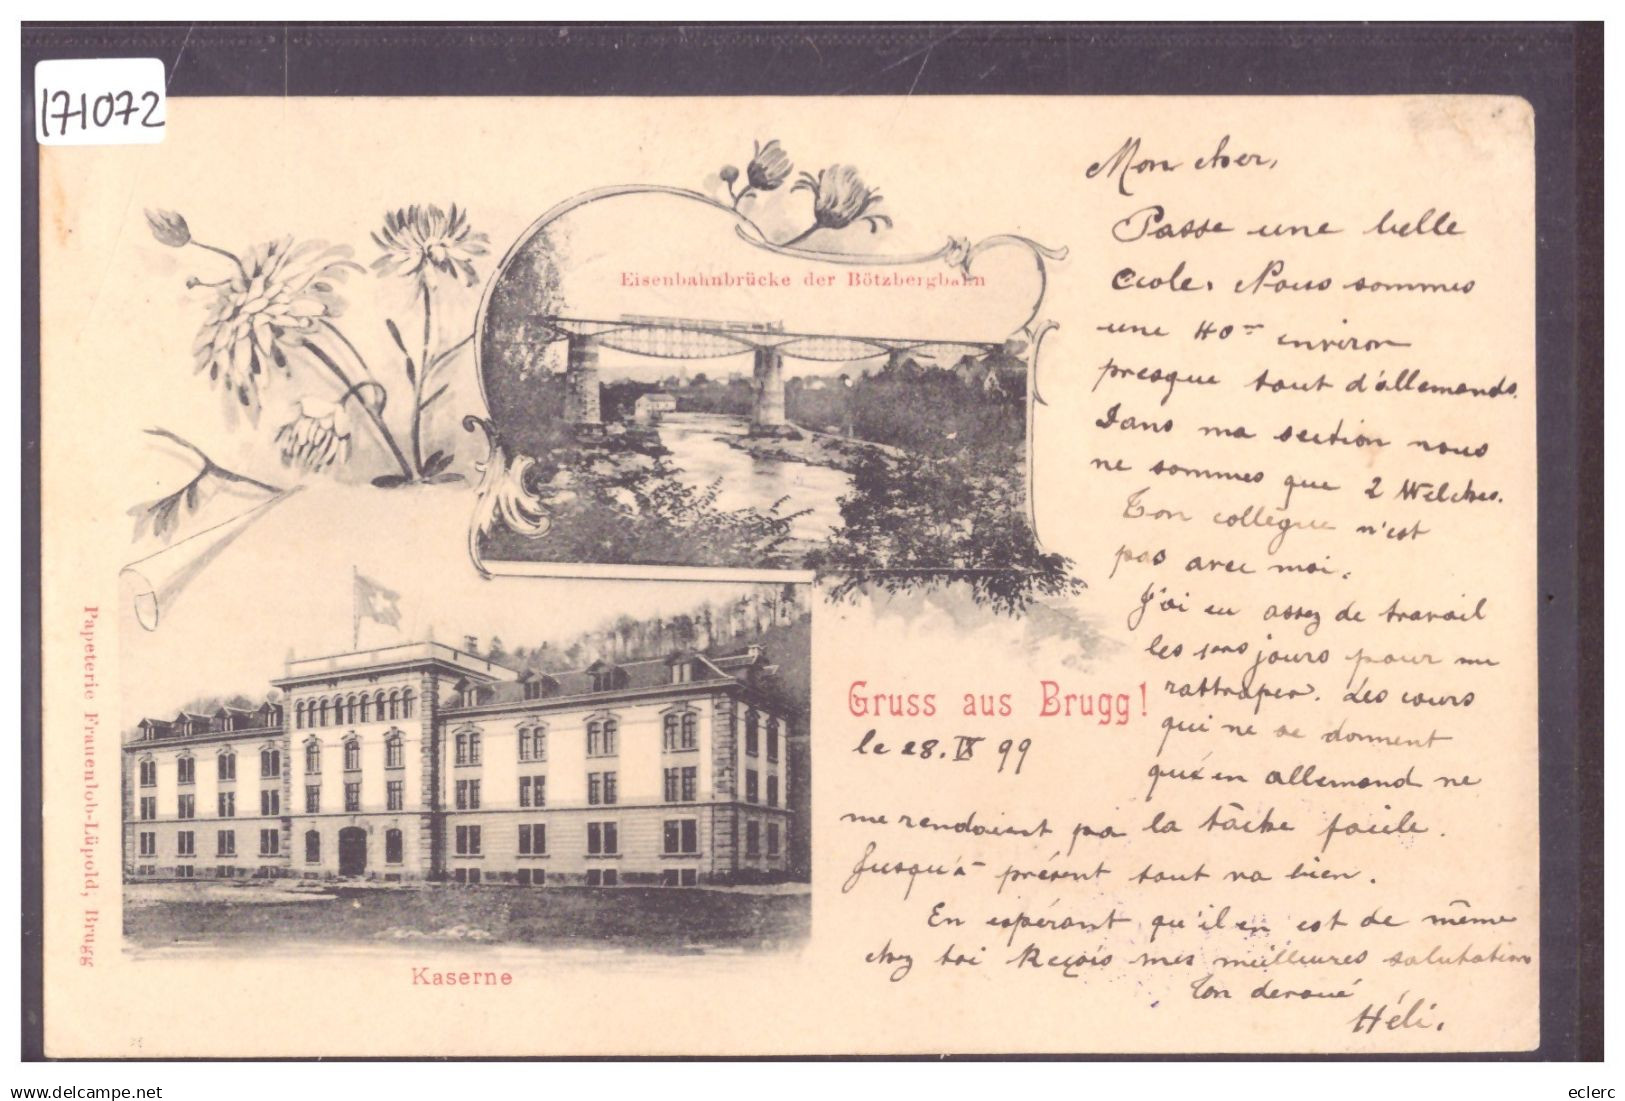 171072
Mon cher,
Passe une belle
école. Nous sommes
une 40ne environ
presque tout d'allemands.
Dans ma section nous
ne sommes que 2 Welches.
Ton collègue n'est
pas avec moi.
J'ai eu assez de travail
les 1ers jours pour me
rattraper. Les cours
qui ne se donnent
qu'en allemand ne
me rendaient pa la tâche facile.
Jusqu'à présent tout va bien.
En espérant qu'il en est de même
chez toi Reçois mes meilleures salutations
Ton dévoué
Héli.
Eisenbahnbrücke der Bötzbergbahn
Gruss aus Brugg!
le 28. IX 99
Kaserne
Papeterie Frauenlob-Lüpold, Brugg
eclerc